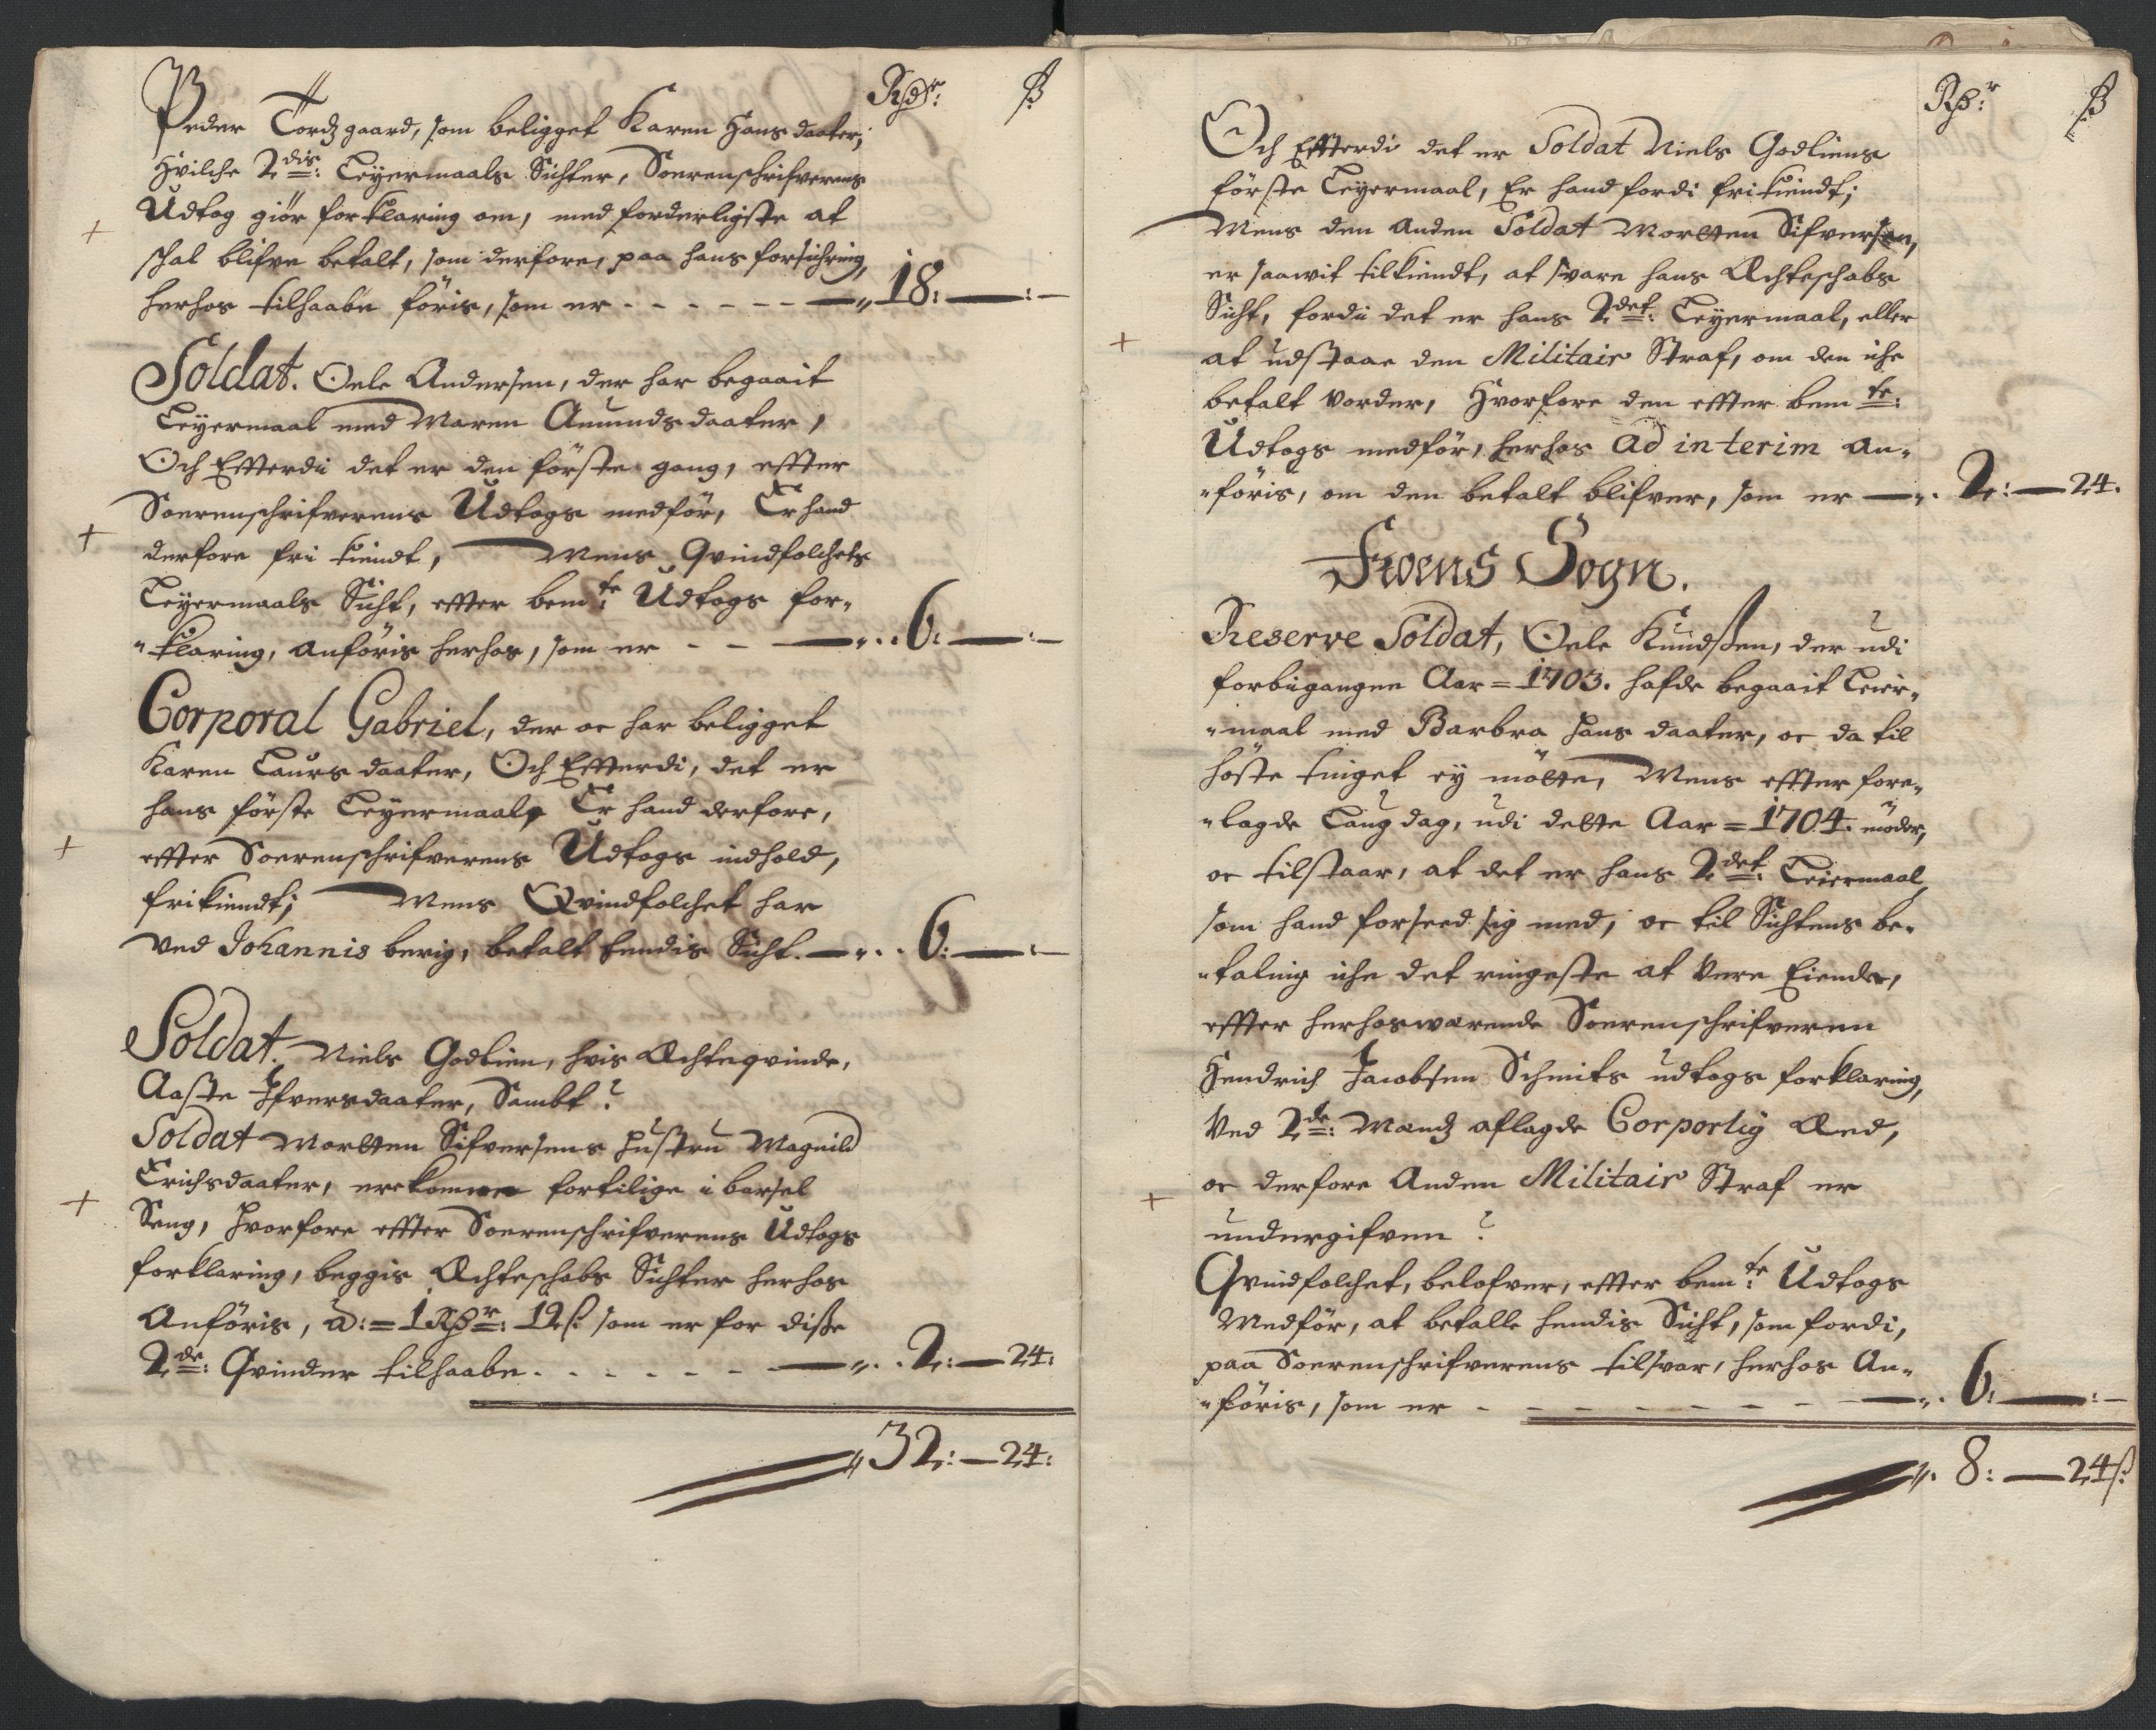 Rdr: ß
Peder Tordsgaard, som beligget Karen Hansdaater,
Hvilche 2dis: Leyermaals Sichter, Sorenschrifverens
Udtog giør forklaring om, med forderligste at
schal blifve betalt, som derfore, paa hans forsichring,
herhos tilhaabe føris, som er - - - - - - 18: — : —
Soldat. Oele Andersen, der har begaait
Leyermaal med Maren Amundsdaater,
Och Efterdi det er den første gang, effter
Sorenschrifverens Udtogs medfør, Er hand
derfore fri kiendt, Mens Qvindfolchets
Leyermaals Sicht, effter bemte: Udtogs for-
-klaring, anføris herhos, som er - - — 6: — : —
Corporal Gabriel, der oc har beligget
Karen Laursdaater, Och Efterdi, det er
hans første Leyermaal, Er hand derfore,
effter Sorenschrifverens Udtogs indhold,
frikiendt; Mens Qvindfolchet har
ved Johannis berig, betalt hendis Sicht. — 6: — : —
Soldat. Niels Godlien, hvis Æchteqvinde,
Aaste Ifversdaater, Sambt
Soldat Morten Sifversens Hustru Magnild
Erichsdaater, ere komne fortilige i barsel
Seng, hvorfore effter Sorenschrifverens Udtogs
forklaring, beggis Æchteschabs Sichter herhos
Anføris, a: = 1 Rdr: 12 ß: som er for disse
2de: Qvinder tilhaabe. - - - - - - — 2: — 24:
32: — 24:
Rdr ß
Och Effterdi det er Soldat Niels Godliens
første Leyermaal, Er hand fordi frikiendt;
Mens den anden Soldat Morten Sifversen,
er saawit tilkiendt, at svare hans Æchteschabs
Sicht, fordi det er hans 2det: Leyermaal, eller
at udstaae den Militair Straf, om den iche
betalt vorder, Hvorfore den effter bemte:
Udtogs medfør, herhos ad interim an-
-føris, om den betalt blifver, som er — 2: — 24.
Froens Sogn.
Reserve Soldat, Oele Knudssen, der udi
forbigangne Aar = 1703. hafde begaait Leier-
-maal med Barbra Hansdaater, oc da til
høste tinget ey mødte, Mens effter fore-
-lagde Laugdag, udi dette Aar = 1704. møder,
oc tilstaar, at det er hans 2det: Leiermaal,
som hand forseed sig med, oc til Sichtens be-
-taling iche det ringeste at Vere Eiende,
effter herhosværende Sorenschrifveren
Hendrich Jacobsen Schmits udtogs forklaring,
Ved 2de: Mænds aflagde Corporlig Æed,
oc derfore Anden Militair Straf er
undergifven
Qvindfolchet, belofver, effter bemte: Udtogs
Medfør, at betalle hendis Sicht, som fordi,
paa Sorenschrifverens tilsvar, herhos An-
-føris, som er - - - - - - - — 6: — : —
8: — 24 ß: